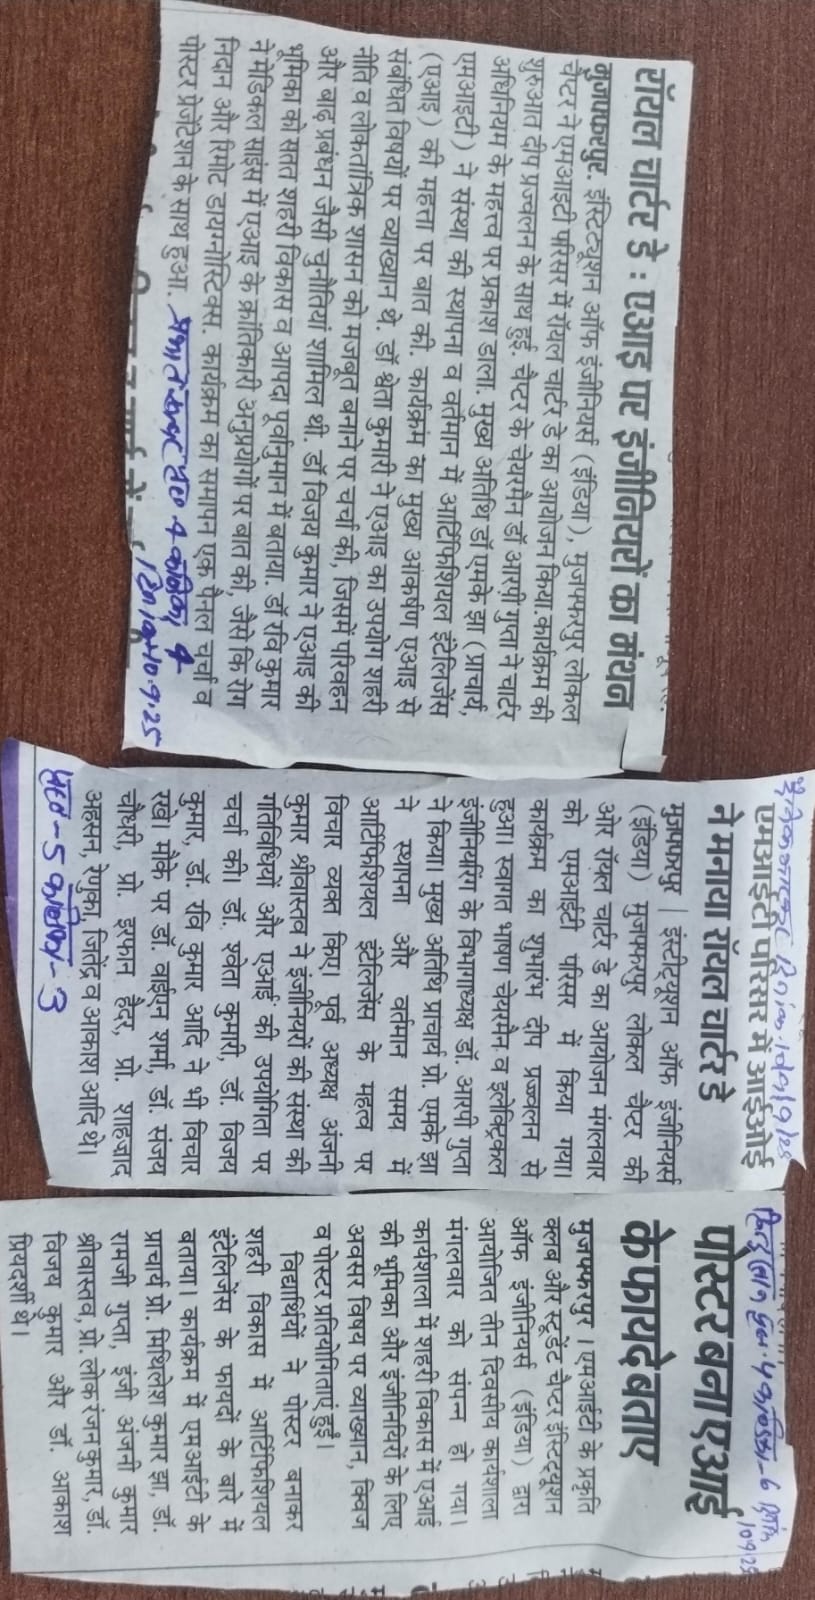 रॉयल चार्टर डे : एआइ पर इंजीनियरों का मंथन
मुजफ्फरपुर. इंस्टिट्यूशन ऑफ इंजीनियर्स (इंडिया), मुजफ्फरपुर लोकल
चैप्टर ने एमआइटी परिसर में रॉयल चार्टर डे का आयोजन किया. कार्यक्रम की
शुरुआत दीप प्रज्वलन के साथ हुई. चैप्टर के चेयरमैन डॉ आरपी गुप्ता ने चार्टर
अधिनियम के महत्व पर प्रकाश डाला. मुख्य अतिथि डॉ एमके झा (प्राचार्य,
एमआइटी) ने संस्था की स्थापना व वर्तमान में आर्टिफिशियल इंटेलिजेंस
(एआइ) की महत्ता पर बात की. कार्यक्रम का मुख्य आकर्षण एआइ से
संबंधित विषयों पर व्याख्यान थे. डॉ श्वेता कुमारी ने एआइ का उपयोग शहरी
नीति व लोकतांत्रिक शासन को मजबूत बनाने पर चर्चा की, जिसमें परिवहन
और बाढ़ प्रबंधन जैसी चुनौतियां शामिल थी. डॉ विजय कुमार ने एआइ की
भूमिका को सतत शहरी विकास व आपदा पूर्वानुमान में बताया. डॉ रवि कुमार
ने मेडिकल साइंस में एआइ के क्रांतिकारी अनुप्रयोगों पर बात की, जैसे कि रोग
निदान और रिमोट डायग्नोस्टिक्स. कार्यक्रम का समापन एक पैनल चर्चा व
पोस्टर प्रेजेंटेशन के साथ हुआ.
10.9.25
एमआइटी परिसर में आईओई
ने मनाया रॉयल चार्टर डे
मुजफ्फरपुर | इंस्टीट्यूशन ऑफ इंजीनियर्स
(इंडिया) मुजफ्फरपुर लोकल चैप्टर की
ओर रॉयल चार्टर डे का आयोजन मंगलवार
को एमआईटी परिसर में किया गया।
कार्यक्रम का शुभारंभ दीप प्रज्ज्वलन से
हुआ। स्वागत भाषण चेयरमैन व इलेक्ट्रिकल
इंजीनियरिंग के विभागाध्यक्ष डॉ. आरपी गुप्ता
ने किया। मुख्य अतिथि प्राचार्य प्रो. एमके झा
ने स्थापना और वर्तमान समय में
आर्टिफिशियल इंटेलिजेंस के महत्व पर
विचार व्यक्त किए। पूर्व अध्यक्ष अंजनी
कुमार श्रीवास्तव ने इंजीनियरों की संस्था की
गतिविधियों और एआई की उपयोगिता पर
चर्चा की। डॉ. श्वेता कुमारी, डॉ. विजय
कुमार, डॉ. रवि कुमार आदि ने भी विचार
रखे। मौके पर डॉ. वाईएन शर्मा, डॉ. संजय
चौधरी, प्रो. इरफान हैदर, प्रो. शहजाद
अहसन, रेणुका, जितेंद्र व आकाश आदि थे।
पृष्ठ - 5 कॉलम - 3
हिन्दुस्तान पृष्ठ-4 कॉलम - 6
10/9/25
पोस्टर बना एआई
के फायदे बताए
मुजफ्फरपुर। एमआईटी के प्रकृति
क्लब और स्टूडेंट चैप्टर इंस्टिट्यूशन
ऑफ इंजीनियर्स (इंडिया) द्वारा
आयोजित तीन दिवसीय कार्यशाला
मंगलवार को संपन्न हो गया।
कार्यशाला में शहरी विकास में एआई
की भूमिका और इंजीनियरों के लिए
अवसर विषय पर व्याख्यान, क्विज
व पोस्टर प्रतियोगिताएं हुईं।
विद्यार्थियों ने पोस्टर बनाकर
शहरी विकास में आर्टिफिशियल
इंटेलिजेंस के फायदों के बारे में
बताया। कार्यक्रम में एमआईटी के
प्राचार्य प्रो. मिथिलेश कुमार झा, डॉ.
रामजी गुप्ता, इंजी अंजनी कुमार
श्रीवास्तव, प्रो. लोक रंजन कुमार, डॉ.
विजय कुमार और डॉ. आकाश
प्रियदर्शी थे।